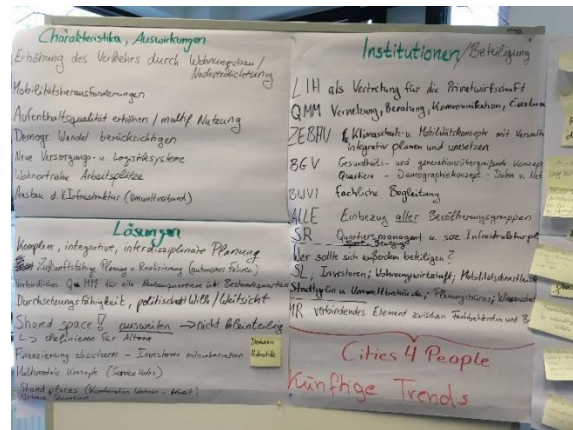 Charakteristika, Auswirkungen
Erhöhung des Verkehrs durch Wohnungsbau/
Nachverdichtung
Mobilitätsherausforderungen
Aufenthaltsqualität erhöhen / multif. Nutzung
Demogr. Wandel berücksichtigen
Neue Versorgungs- u. Logistiksysteme
Wohnortnahe Arbeitsplätze
Ausbau d. Infrastruktur (Umweltverbund)
Lösungen
Komplexe, integrative, interdisziplinäre Planung
Zukunftsfähige Planung u. Realisierung (autonomes Fahren)
Verbindliches QMM für alle Neubauquartiere inkl. Bestandsquartiere
Durchsetzungsfähigkeit, politischer Wille / Weitsicht
Shared space! ausweiten → nicht kleinteilig
↳ definieren für Altona
Finanzierung absichern – Investoren miteinbeziehen
Multimodale Konzepte (Service Hubs)
Shared places (Kombination Wohnen u. Arbeit)
Urbane Quartiere
Institutionen / Beteiligung
LIH als Vertretung für die Privatwirtschaft
QMM Vernetzung, Beratung, Kommunikation,
ZEBAU Klimaschutz- u. Mobilitätskonzepte mit
integrativ planen und umsetzen
BGV Gesundheits- und generationsübergreifende
Quartiere - Demographiekonzept - Daten u.
BWVI fachliche Begleitung
ALLE Einbezug aller Bevölkerungsgruppen
SR Quartiersmanagent u. soz. Infrastruktur
Wer sollte sich außerdem beteiligen?
SL; Investoren; Wohnungswirtschaft; Mobilitätsdienstleister
Stadtgrün u. Umweltbehörde; Planungsbüros;
MR verbindendes Element zwischen Fachbehörden und
Cities 4 People
Künftige Trends